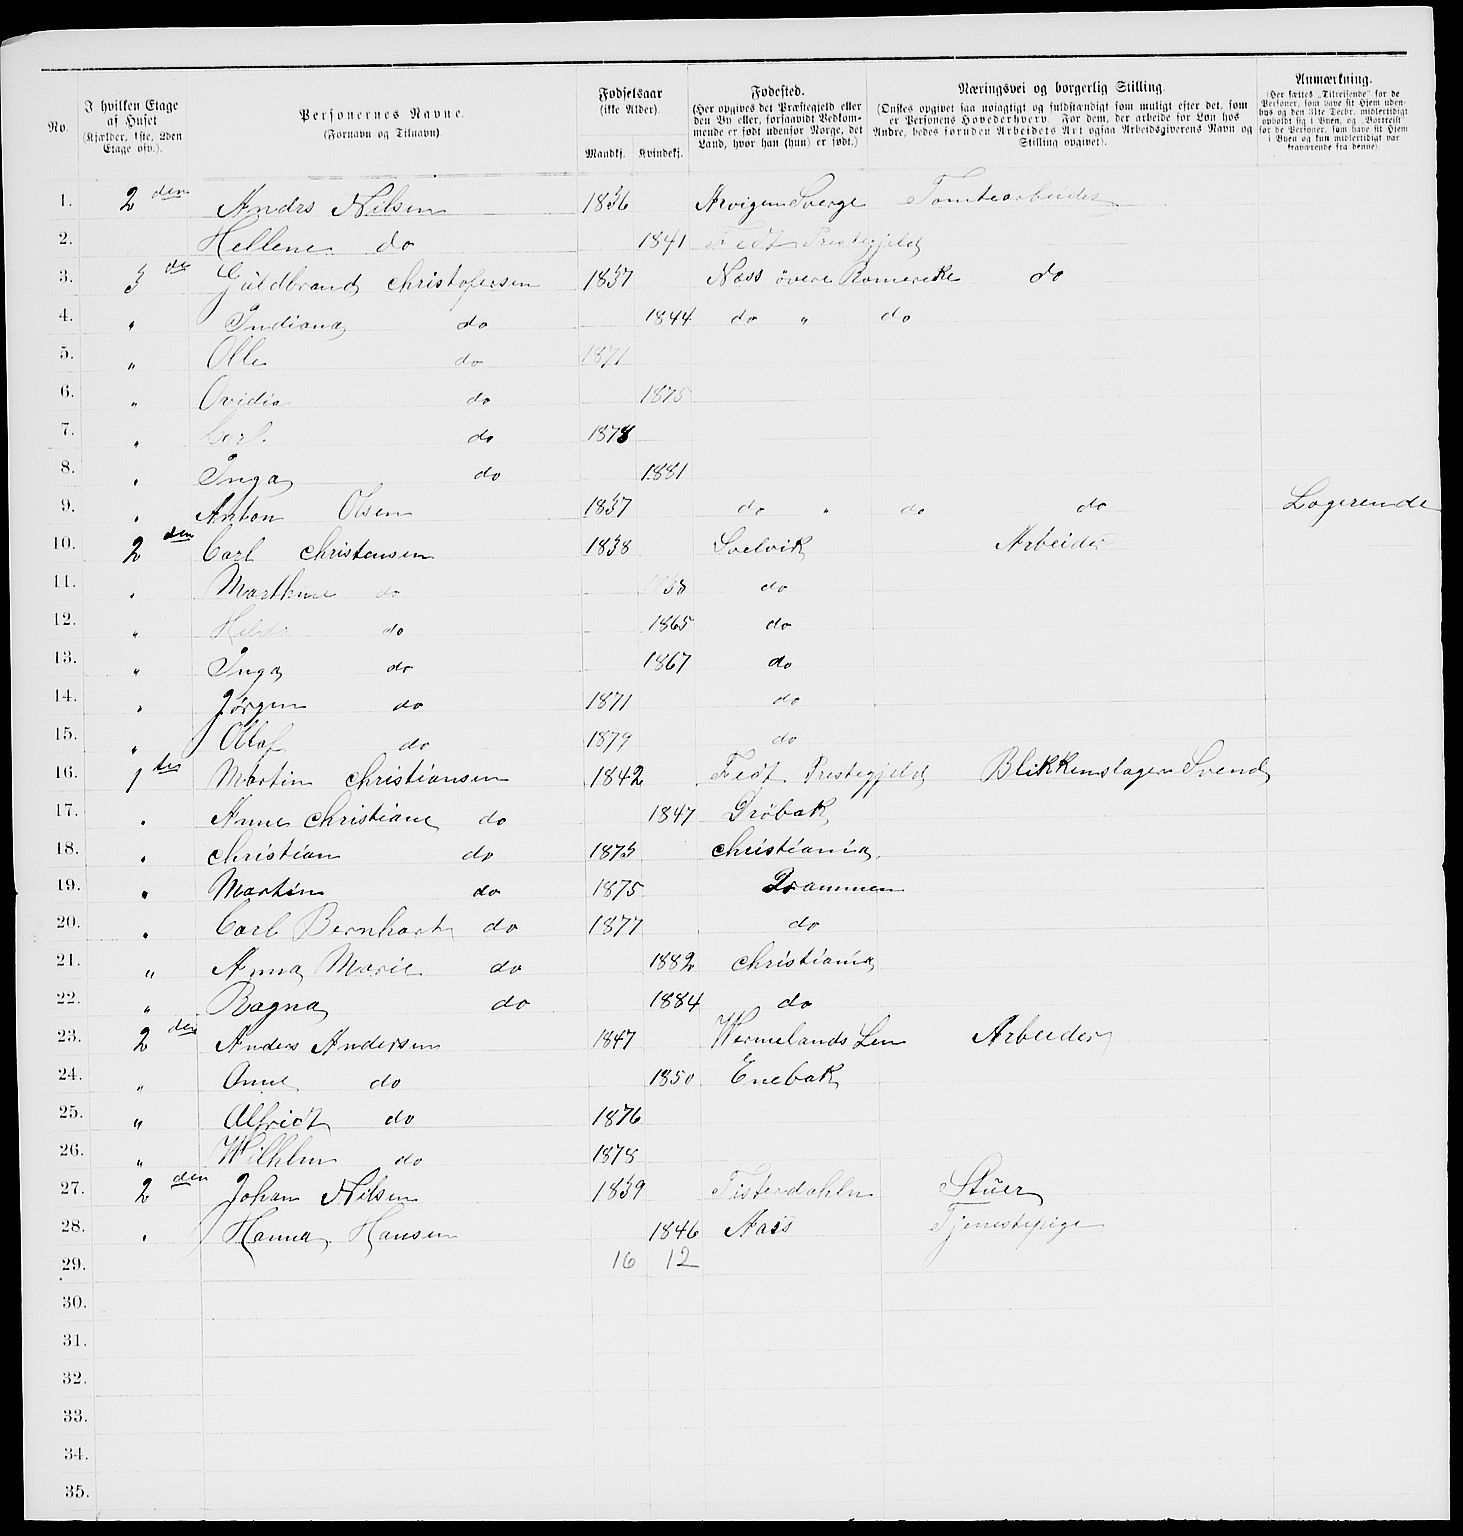 No.
I hvilken Etage af Huset (Kjælder, 1ste, 2den Etage osv.).
Personernes Navne. (Fornavn og Tilnavn).
Fødselsaar (ikke Alder).
Mandkj. Kvindekj.
Fødested. (Her opgives det Præstegjeld eller den By eller, forsaavidt Vedkommende er født udenfor Norge, det Land, hvor han (hun) er født.)
Næringsvei og borgerlig Stilling. (Ønskes opgivet saa nøiagtigt og fuldstændigt som muligt efter det, som er Personens Hovederhverv. For dem, der arbeide for Løn hos Andre, bedes foruden Arbeidets Art ogsaa Arbeidsgiverens Navn og Stilling opgivet).
Anmærkning. (Her sættes „Tilreisende“ for de Personer, som have sit Hjem udenbys og den 31te Decbr. midlertidigt opholdt sig i Byen, og „Bortreist“ for de Personer, som have sit Hjem i Byen og kun midlertidigt var fraværende fra denne).
1. 2 den Anders Nilsen 1836 Arvigen Sverge Tomtearbeider
2. Hellene do 1841 Fedt Prestegjeld
3. 3 de Guldbrand Christofersen 1837 Næss övere Romereke do
4. " Indiana do 1844 do " do
5. " Olle do 1871
6. " Ovidia do 1875
7. " Carl do 1878
8. " Inga do 1881
9. " Anton Olsen 1837 do " do do Logerende
10. 2 den Carl Christensen 1838 Svelvik Arbeider
11. " Marthine do 1838 do
12. " Hilda do 1865 do
13. " Inga do 1867 do
14. " Jörgen do 1871 do
15. " Ollaf do 1879 do
16. 1 ste Martin Christiansen 1842 Fedt Prestegjeld Blikkenslager Svend
17. " Anne Christiane do 1847 Dröbak
18. " Christian do 1873 Christiania
19. " Martin do 1875 Drammen
20. " Carl Bernhart do 1877 do
21. " Anna Marie do 1882 Christiania
22. " Ragna do 1884 do
23. 2 den Anders Andersen 1847 Wermelands Len Arbeider
24. " Anne do 1850 Enebak
25. " Alfridt do 1876
26. " Wilhlm do 1878
27. 2 den Johan Nilsen 1839 Tisterdahln Stüer
28. " Hanna Hansen 1846 Næss Tjenestepige
29. 16 12
30.
31.
32.
33.
34.
35.